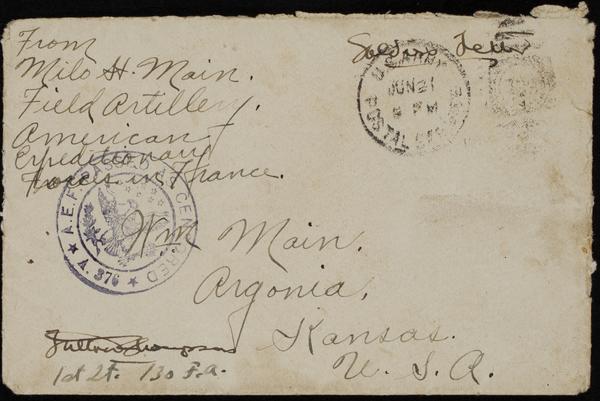 From
Milo H. Main.
Field Artillery.
American
Expeditionary
Forces in France.
Soldiers Letter
U.S. ARMY POSTAL SERVICE
JUN 21
A.E.F. PASSED AS CENSORED
A. 376
Wm Main.
Argonia,
Kansas.
U. S. A.
Thompson
1st Lt. 130 F.A.